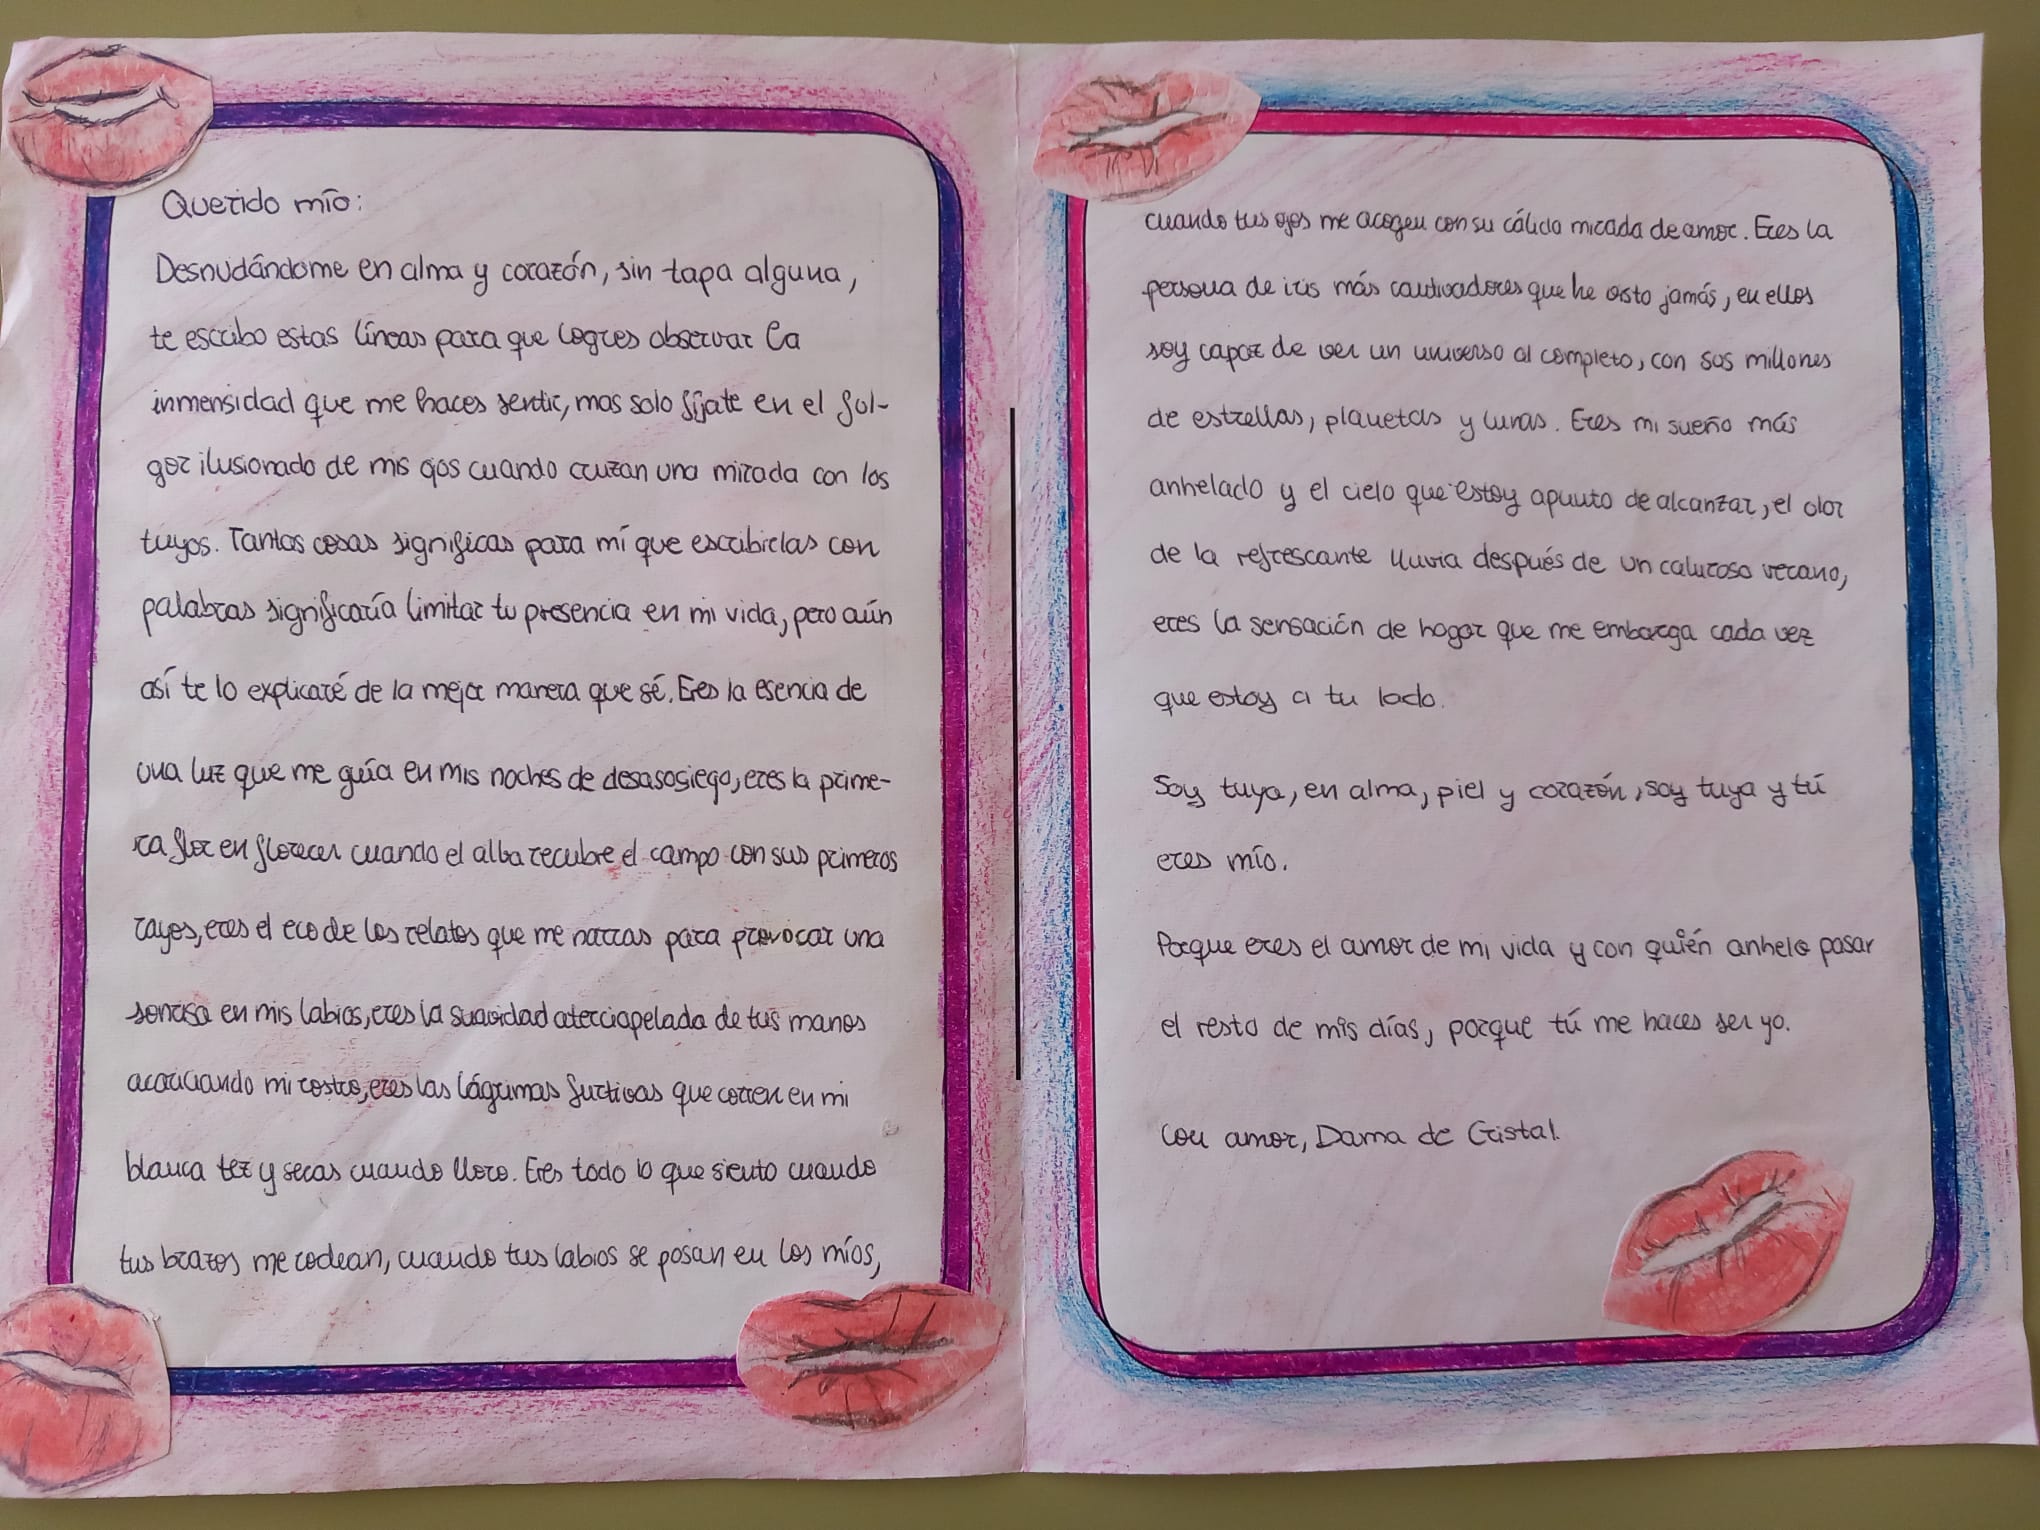 Querido mío:
Desnudándome en alma y corazón, sin tapa alguna,
te escribo estas líneas para que logres observar la
inmensidad que me haces sentir, mas solo fíjate en el ful-
gor ilusionado de mis ojos cuando cruzan una mirada con los
tuyos. Tantas cosas significas para mí que escribirlas con
palabras significaría limitar tu presencia en mi vida, pero aún
así te lo explicaré de la mejor manera que sé. Eres la esencia de
una luz que me guía en mis noches de desasosiego, eres la prime-
ra flor en florecer cuando el alba recubre el campo con sus primeros
rayos, eres el eco de los relatos que me narras para provocar una
sonrisa en mis labios, eres la suavidad aterciapelada de tus manos
acariciando mi rostro, eres las lágrimas furtivas que corren en mi
blanca tez y secas cuando lloro. Eres todo lo que siento cuando
tus brazos me rodean, cuando tus labios se posan en los míos,
cuando tus ojos me acogen con su cálida mirada de amor. Eres la
persona de iris más cautivadores que he visto jamás, en ellos
soy capaz de ver un universo al completo, con sus millones
de estrellas, planetas y lunas. Eres mi sueño más
anhelado y el cielo que estoy apunto de alcanzar, el olor
de la refrescante lluvia después de un caluroso verano,
eres la sensación de hogar que me embarga cada vez
que estoy a tu lado.
Soy tuya, en alma, piel y corazón, soy tuya y tú
eres mío.
Porque eres el amor de mi vida y con quién anhelo pasar
el resto de mis días, porque tú me haces ser yo.
Con amor, Dama de Cristal.